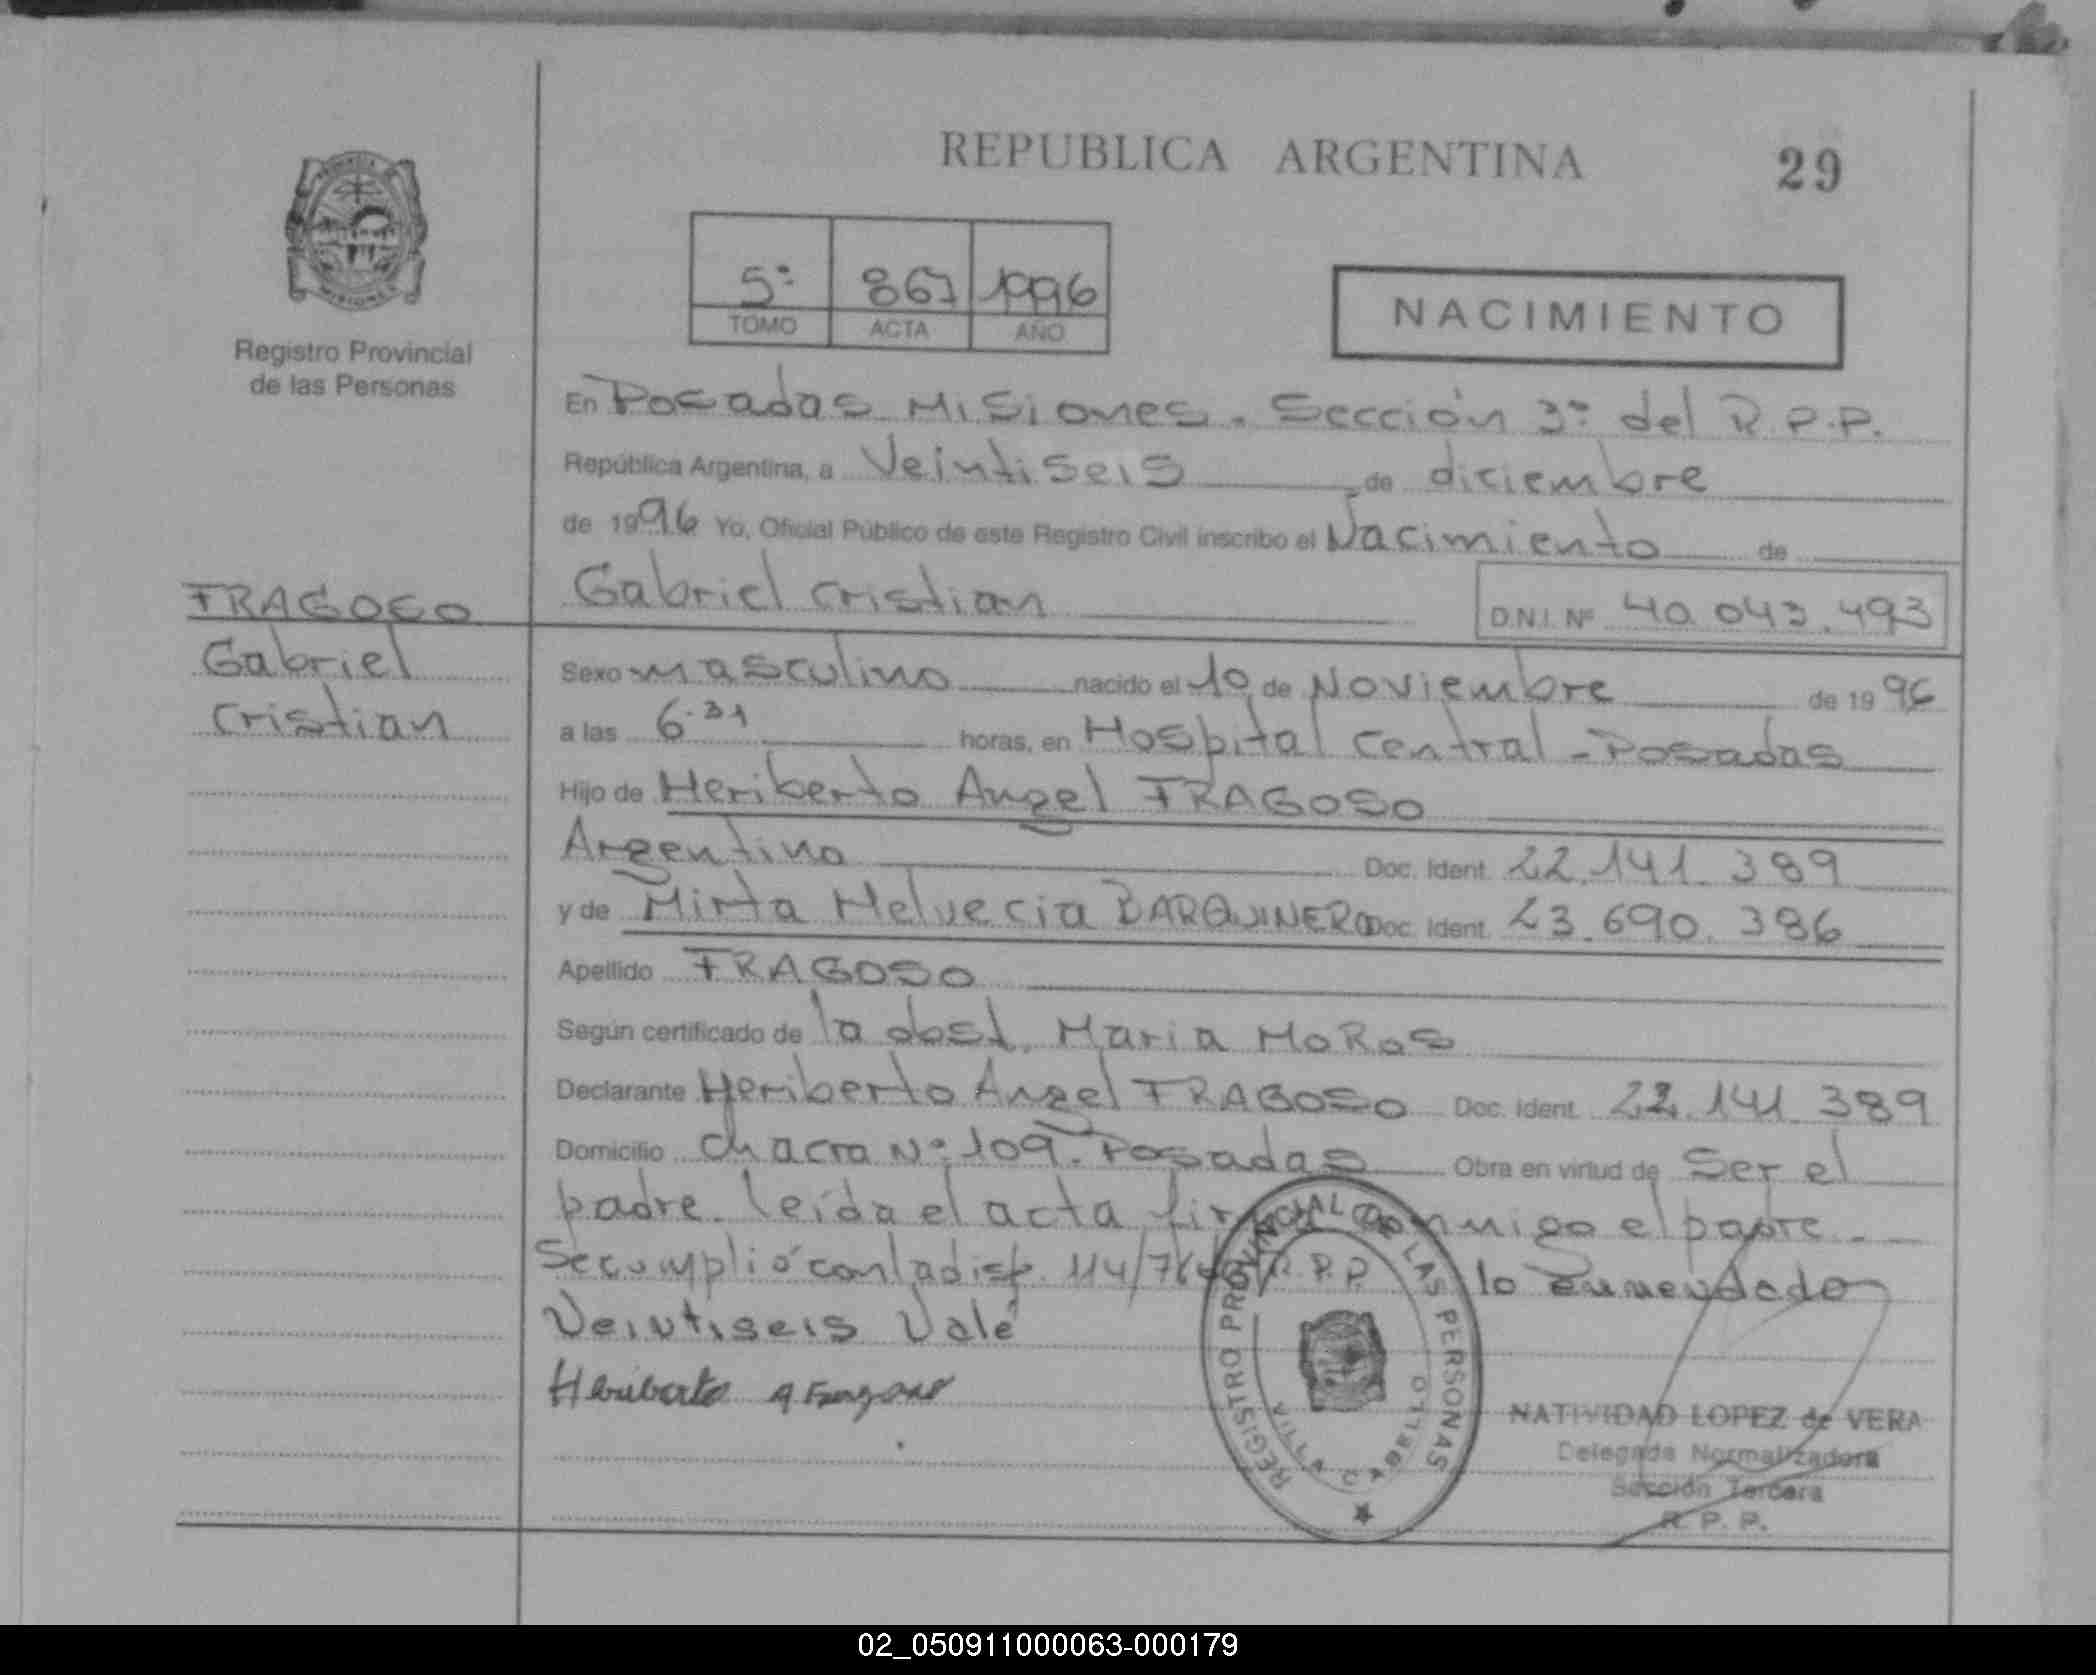 REPUBLICA ARGENTINA
29
PROVINCIA
MISIONES
Registro Provincial
de las Personas
5º 867 1996
TOMO ACTA AÑO
NACIMIENTO
En Posadas Misiones. Sección 3º del R.P.P.
República Argentina, a Veintiseis de diciembre
de 1996 Yo, Oficial Público de este Registro Civil inscribo el Nacimiento de
Gabriel Cristian
D.N.I. Nº 40.043.493
FRAGOSO
Gabriel
Cristian
Sexo masculino nacido el 10 de Noviembre de 1996
a las 6.31 horas, en Hospital Central - Posadas
Hijo de Heriberto Angel FRAGOSO
Argentino Doc. Ident. 22.141.389
y de Mirta Helvecia BARQUINERO Doc. Ident. 23.690.386
Apellido FRAGOSO
Según certificado de la obst. Maria MoRas
Declarante Heriberto Angel FRAGOSO Doc. Ident. 22.141.389
Domicilio Chacra Nº 109. Posadas Obra en virtud de Ser el
padre. leída el acta conmigo el padre.
Se cumplió con la disp. 114/ lo enmendado
Veintiseis Vale
Heriberto A Fragoso
REGISTRO PROVINCIAL DE LAS PERSONAS
R.P.P.
VILLA CABELLO
NATIVIDAD LOPEZ de VERA
Delegada Normalizadora
Sección Tercera
R. P. P.
02_050911000063-000179